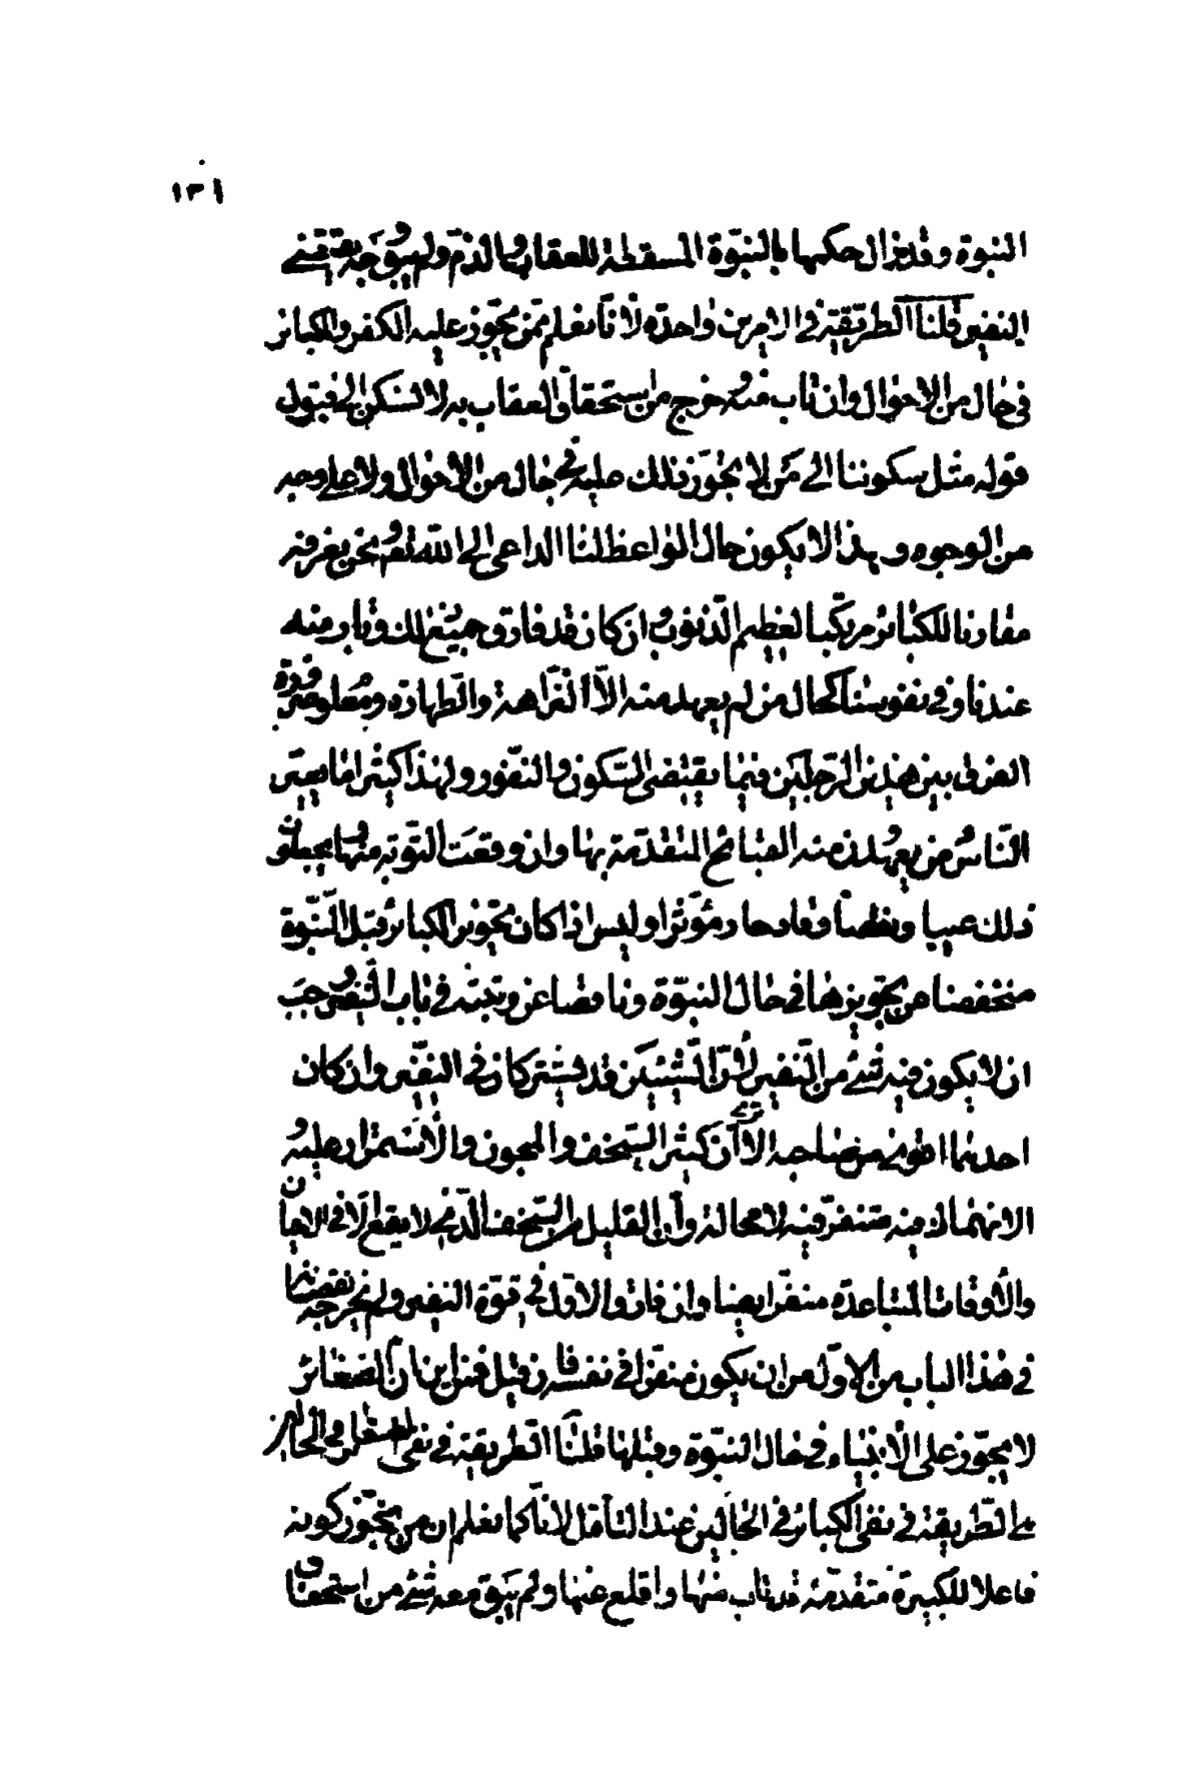 ١٣٦
النبوة وقد زال حكمها بالنبوّة المسقطة للعقاب والذمّ ولم يبق وجه يقتضي
التنفير قلنا الطريقة في الامرين واحدة لأنّا نعلم ممّن يجوّز عليه الكفر والكبائر
في حال من الاحوال وان تاب منه وخرج من استحقاق العقاب به لا نسكن الى قبول
قوله مثل سكوننا الى من لا يجوّز ذلك عليه في حال من الأحوال ولا على وجه
من الوجوه ولهذا لا يكون حال الواعظ لنا الداعي الى الله تعو ونحن نعرفه
مقارنا للكبائر مرتكبا لعظيم الذنوب وان كان قد فارق جميع ذلك وتاب منه
عندنا وفي نفوسنا كحال من لم يعهد منه الاّ النّزاهة والطهارة ومعلوم ضرورة
الفرق بين هذين الرجلين فيما يقتضى السّكون والنفور ولهذا كثيرا ما يعيّر
النّاس من يعهدون منه القبائح المتقدّمة بها وان وقعت التوبة منها ويجعلون
ذلك عيبا ونقصا وقادحا ومؤثرا وليس اذا كان تجويز الكبائر قبل النّبوة
منخفضا من تجويزها في حال النبوّة وناقصا عن رتبته في باب التّنفير وجب
ان لا يكون فيه شيء من التّنفير لأنّ الشّيئين قد يشتركان في التنفير وان كان
احدهما اقوى من صاحبه الا ترى أنّ كثير السّخف والمجون والأستمرار عليه و
الانهماك فيه منفّر لا محالة وأنّ القليل من السّخف الّذي لا يقع الّا في الاحيان
والأوقات المتباعدة منفّر ايضا وان فارق الاوّل في قوّة التنفير ولم يخرجه نقصانه
في هذا الباب من الاوّل من ان يكون منفّرا في نفسه فان قيل فمن اين انّ الصغائر
لا يجوز على الأنبياء في حال النبوّة وقبلها قلنا الطّريقة في نفى الصغائر في الحالين
هي الطّريقة في نفى الكبائر في الحالتين عند التأمّل لانّا كما نعلم ان من يجوّز كونه
فاعلا للكبيرة متقدّمة قد تاب منها واقلع عنها ولم يبق معه شيء من استحقاق